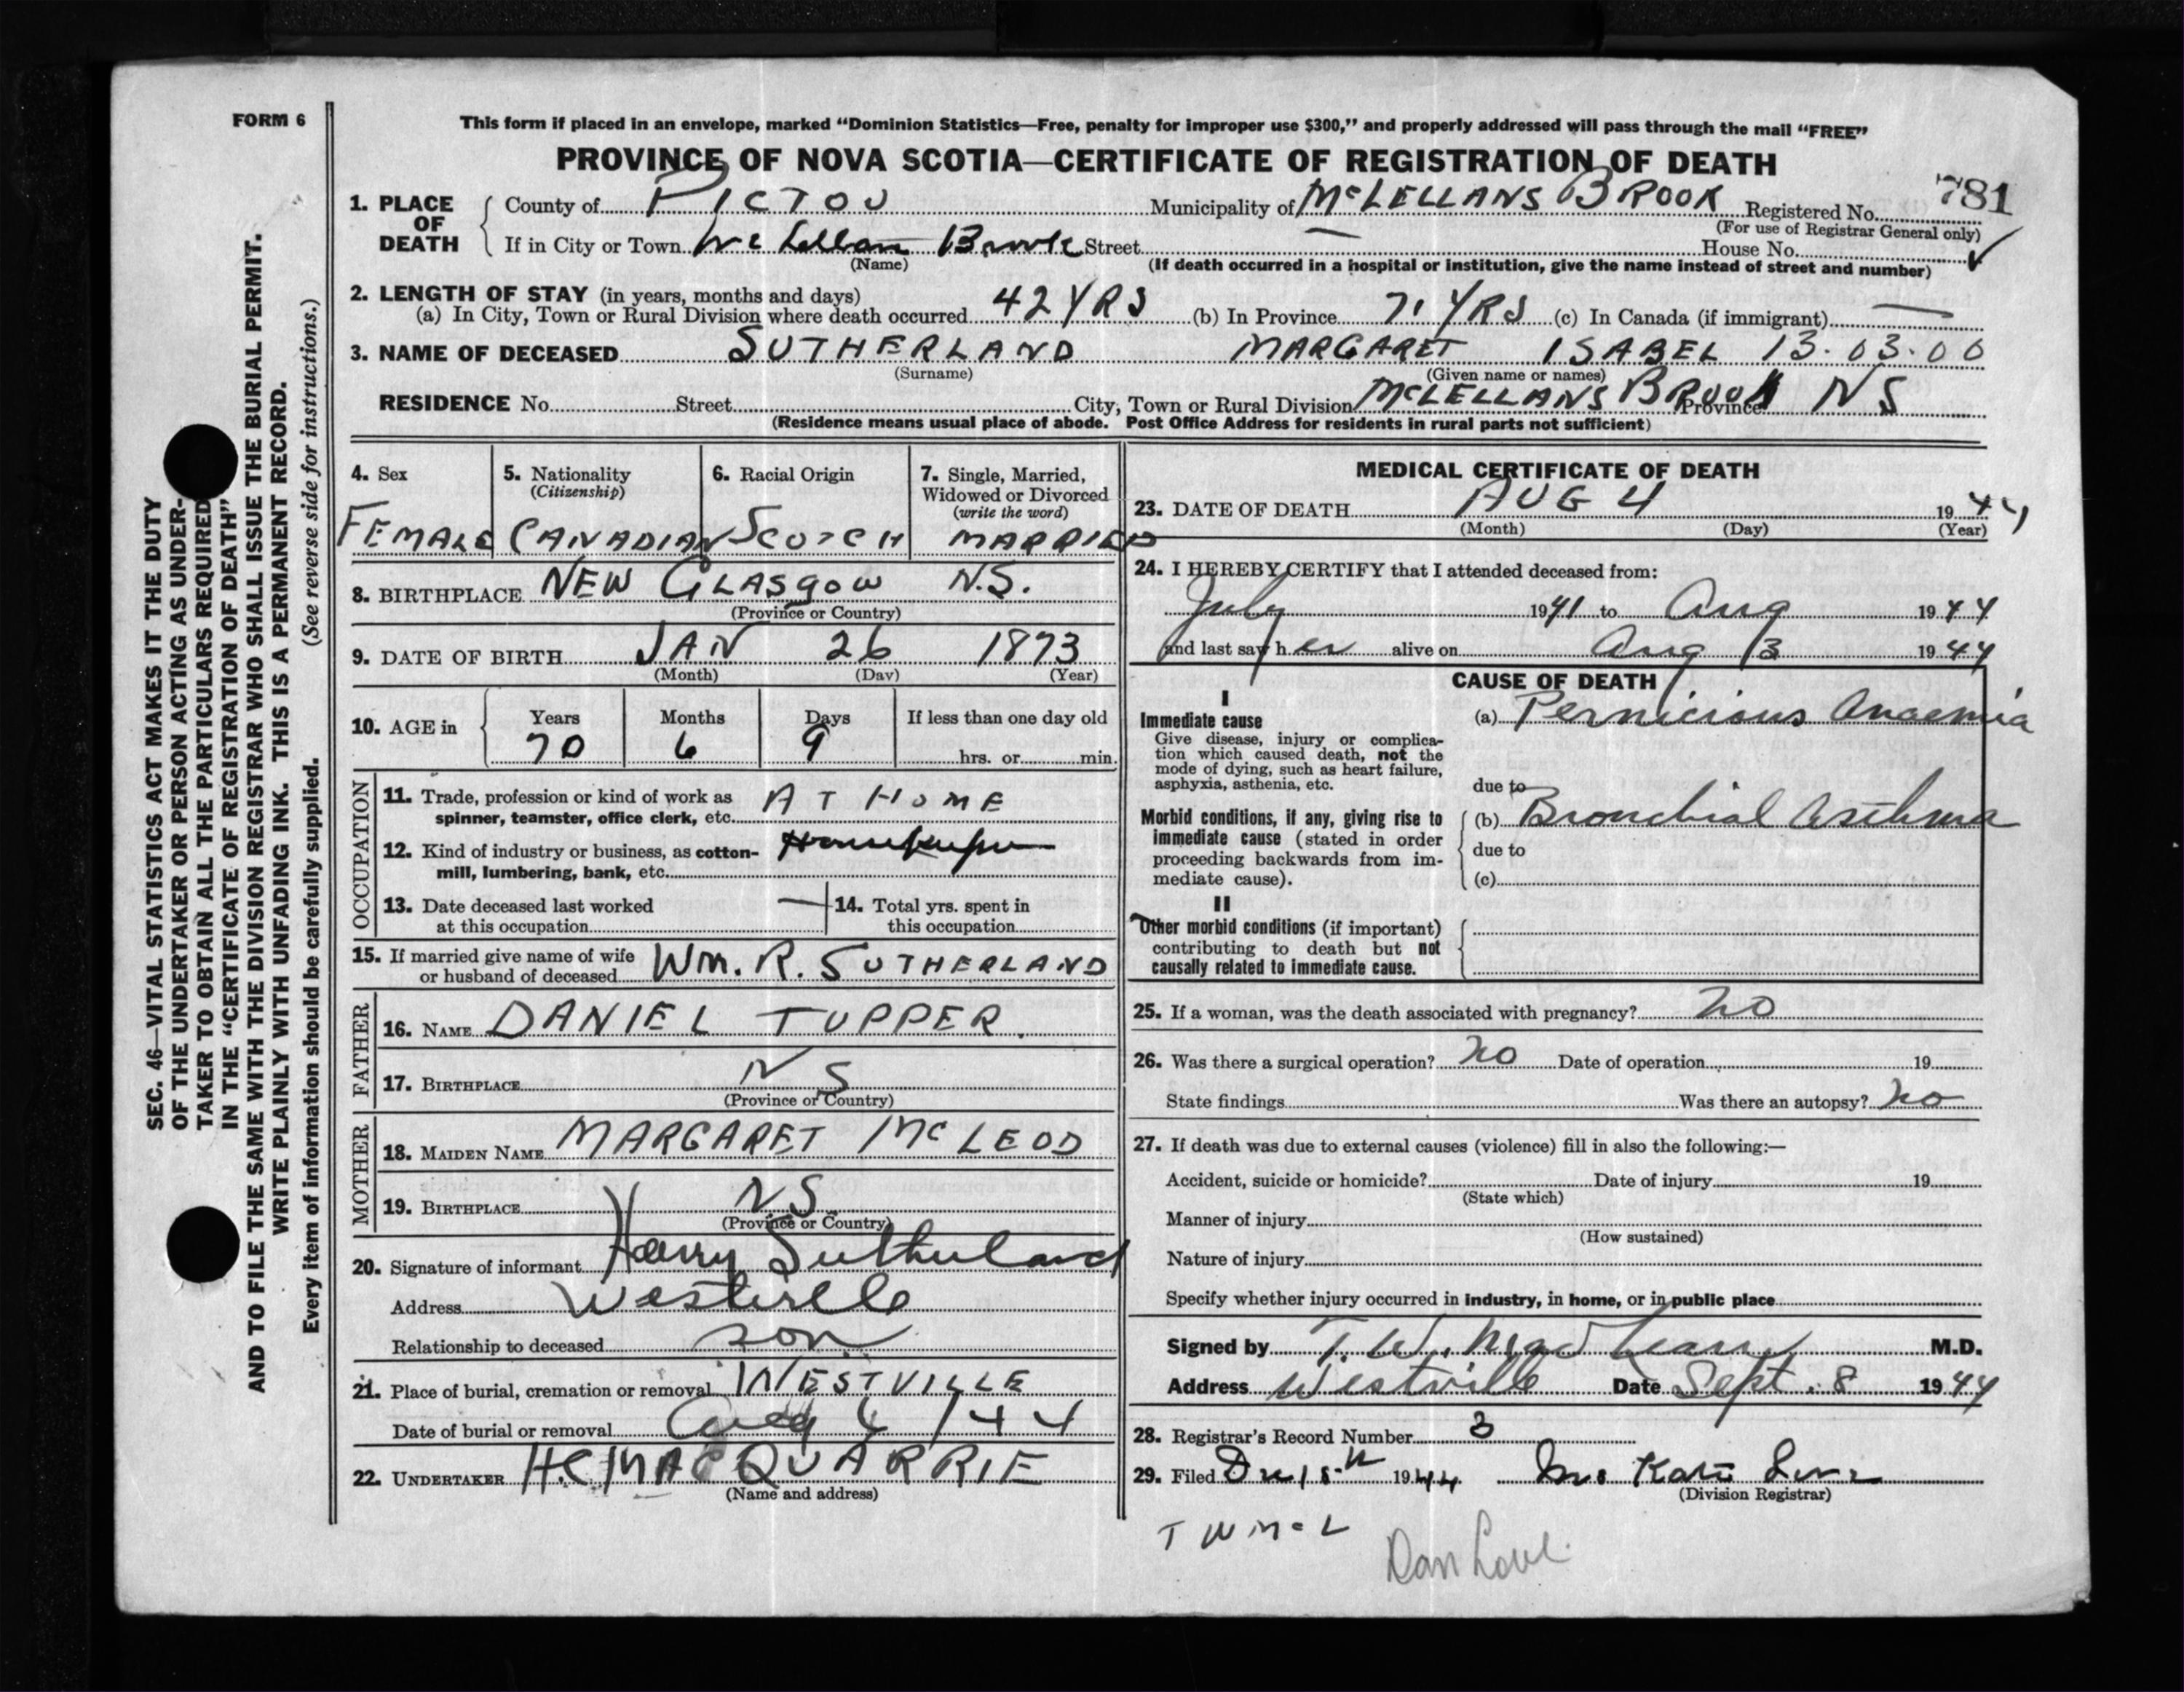 FORM 6
This form if placed in an envelope, marked “Dominion Statistics—Free, penalty for improper use $300,” and properly addressed will pass through the mail “FREE”
PROVINCE OF NOVA SCOTIA—CERTIFICATE OF REGISTRATION OF DEATH
781
1. PLACE OF DEATH
County of PICTOU Municipality of McLELLANS BROOK Registered No.
(For use of Registrar General only)
If in City or Town McLellan Brook Street — House No. ✓
(Name) (If death occurred in a hospital or institution, give the name instead of street and number)
2. LENGTH OF STAY (in years, months and days)
(a) In City, Town or Rural Division where death occurred 42 YRS (b) In Province 71 YRS (c) In Canada (if immigrant) —
3. NAME OF DECEASED SUTHERLAND MARGARET ISABEL 13.03.00
(Surname) (Given name or names)
RESIDENCE No. Street City, Town or Rural Division McLELLANS BROOK Province NS
(Residence means usual place of abode. Post Office Address for residents in rural parts not sufficient)
4. Sex
FEMALE
5. Nationality
(Citizenship)
CANADIAN
6. Racial Origin
SCOTCH
7. Single, Married,
Widowed or Divorced
(write the word)
MARRIED
8. BIRTHPLACE NEW GLASGOW N.S.
(Province or Country)
9. DATE OF BIRTH JAN 26 1873
(Month) (Day) (Year)
10. AGE in Years Months Days If less than one day old
70 6 9 hrs. or min.
OCCUPATION
11. Trade, profession or kind of work as AT HOME
spinner, teamster, office clerk, etc.
12. Kind of industry or business, as cotton-
mill, lumbering, bank, etc.
13. Date deceased last worked —
at this occupation
14. Total yrs. spent in
this occupation
15. If married give name of wife
or husband of deceased WM. R. SUTHERLAND
FATHER
16. NAME DANIEL TUPPER.
17. BIRTHPLACE NS
(Province or Country)
MOTHER
18. MAIDEN NAME MARGARET McLEOD
19. BIRTHPLACE NS
(Province or Country)
20. Signature of informant Harry Sutherland
Address Westville
Relationship to deceased son
21. Place of burial, cremation or removal WESTVILLE
Date of burial or removal Aug 6/44
22. UNDERTAKER H.C MACQUARRIE
(Name and address)
MEDICAL CERTIFICATE OF DEATH
23. DATE OF DEATH AUG 4 1944
(Month) (Day) (Year)
24. I HEREBY CERTIFY that I attended deceased from:
July 1941 to Aug 1944
and last saw her alive on Aug 3 1944
CAUSE OF DEATH
I
Immediate cause
Give disease, injury or complica-
tion which caused death, not the
mode of dying, such as heart failure,
asphyxia, asthenia, etc.
(a) Pernicious Anaemia
due to
Morbid conditions, if any, giving rise to
immediate cause (stated in order
proceeding backwards from im-
mediate cause).
(b) Bronchial Asthma
due to
(c)
II
Other morbid conditions (if important)
contributing to death but not
causally related to immediate cause.
25. If a woman, was the death associated with pregnancy? no
26. Was there a surgical operation? no Date of operation 19
State findings Was there an autopsy? no
27. If death was due to external causes (violence) fill in also the following:—
Accident, suicide or homicide? Date of injury 19
(State which)
Manner of injury
(How sustained)
Nature of injury
Specify whether injury occurred in industry, in home, or in public place
Signed by T. W. MacLean M.D.
Address Westville Date Sept. 8 1944
28. Registrar's Record Number 3
29. Filed 1944 Mrs Kate
(Division Registrar)
T W McL
Dan
SEC. 46—VITAL STATISTICS ACT MAKES IT THE DUTY
OF THE UNDERTAKER OR PERSON ACTING AS UNDER-
TAKER TO OBTAIN ALL THE PARTICULARS REQUIRED
IN THE “CERTIFICATE OF REGISTRATION OF DEATH”
AND TO FILE THE SAME WITH THE DIVISION REGISTRAR WHO SHALL ISSUE THE BURIAL PERMIT.
WRITE PLAINLY WITH UNFADING INK. THIS IS A PERMANENT RECORD.
Every item of information should be carefully supplied. (See reverse side for instructions.)